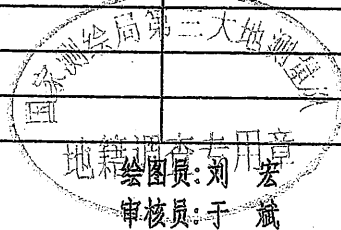 国家测绘局第三大地测量队
地籍调查专用章
绘图员:刘 宏
审核员:于 斌